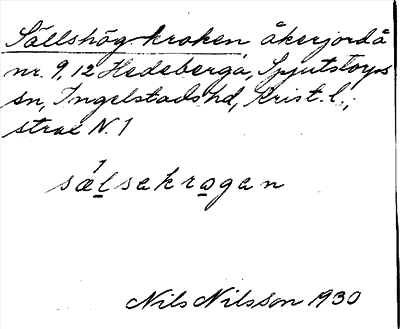 Sällshög kroken, åkerjord å
nr. 9, 12 Hedeberga, Spjutstorps
sn, Ingelstads hd, Krist. l.,
strax N. 1
sælsakrogan
Nils Nilsson 1930